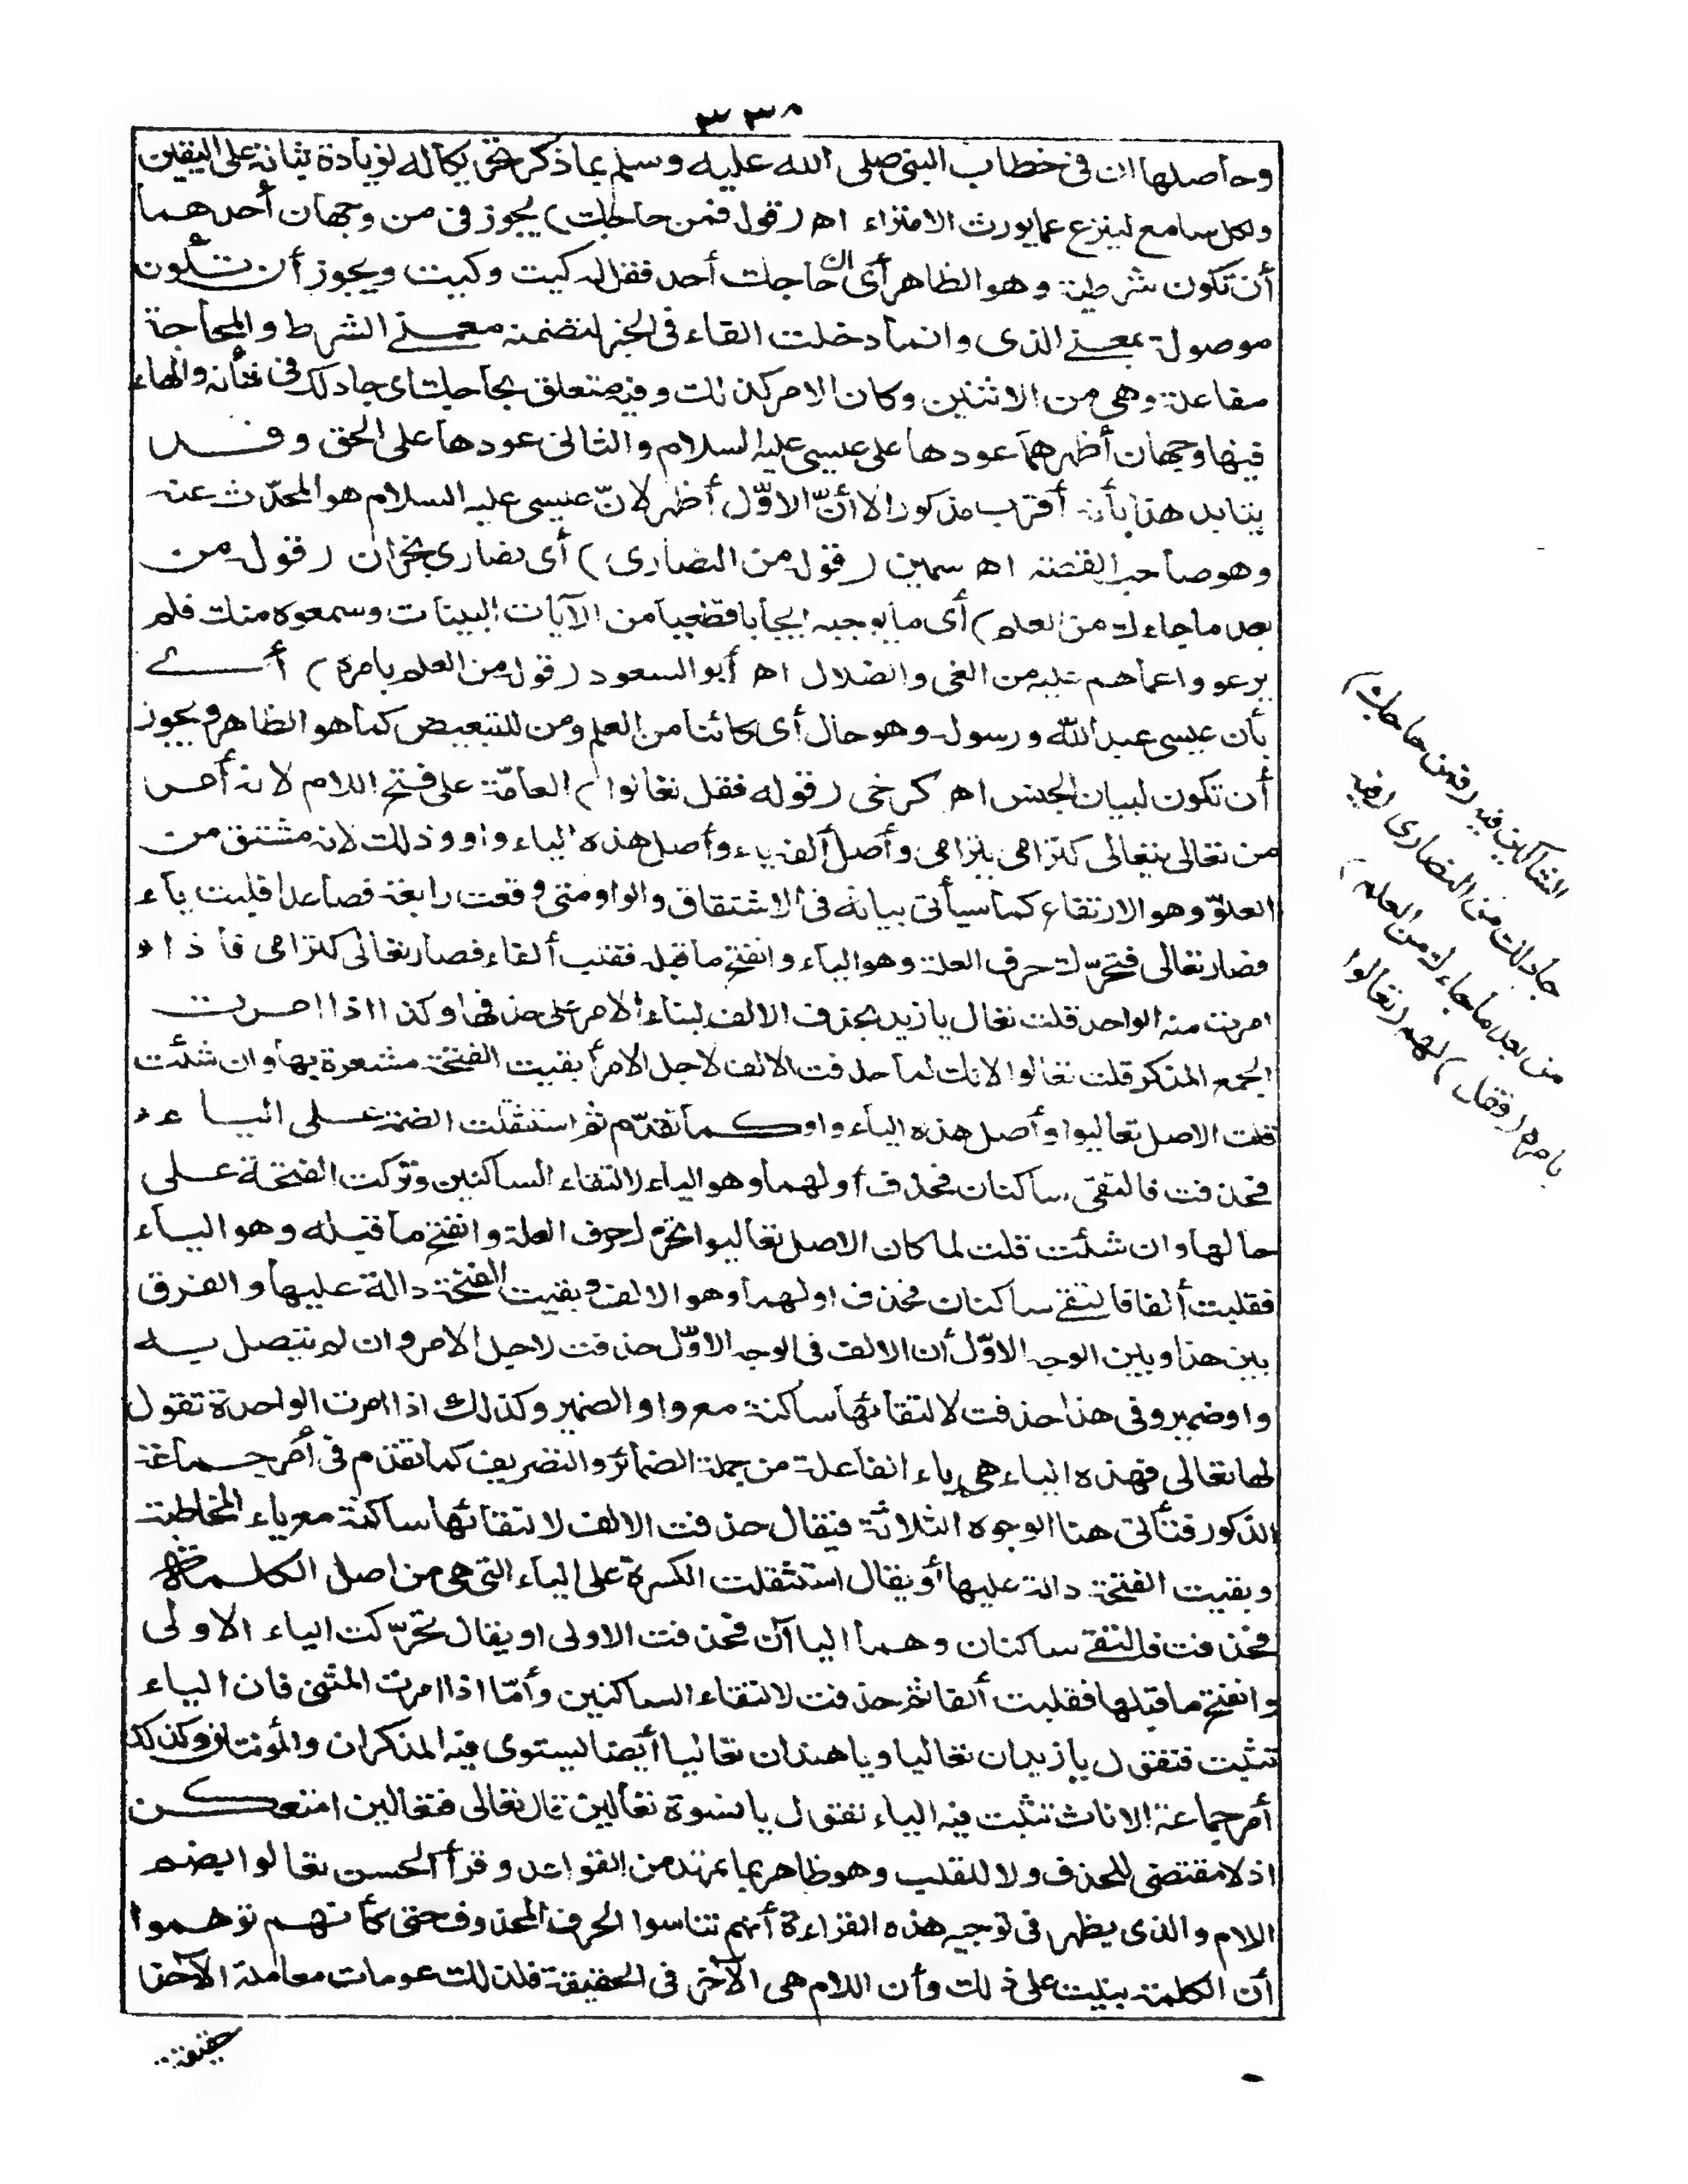 ٣٣٨
وحاصلها ان في خطاب النبي صلى الله عليه وسلم بما ذكر تحريكا له لزيادة ثباته على اليقين
ولكل سامع لينزع عما يورث الامتراء اه (قوله فمن حاجك) يجوز في من وجهان أحدهما
أن تكون شرطية وهو الظاهر أى ان حاجك أحد فقل له كيت وكيت ويجوز أن تكون
موصولة بمعنى الذى وانما دخلت الفاء في الخبر لتضمنه معنى الشرط والمحاجة
مفاعلة وهي من الاثنين وكان الامر كذلك وفيه متعلق بحاجك اى جادلك في شأنه والهاء
فيها وجهان أظهرهما عودها على عيسى عليه السلام والثاني عودها على الحق وقد
يتايد هذا بأنه أقرب مذكور الا أنّ الاوّل أظهر لانّ عيسى عليه السلام هو المحدّث عنه
وهو صاحب القصة اه سمين (قوله من النصارى) أى نصارى نجران (قوله من
بعد ما جاءك من العلم) أى ما يوجبه ايجابا قطعيا من الآيات البينات وسمعوه منك فلم
يرعووا عما هم عليه من الغى والضلال اه أبو السعود (قوله من العلم بامره) أى
بأن عيسى عبد الله ورسوله وهو حال أى كائنا من العلم ومن للتبعيض كما هو الظاهر ويجوز
أن تكون لبيان الجنس اه كرخى (قوله فقل تعالوا) العامّة على فتح اللام لانه أمر
من تعالى يتعالى كترامى يترامى وأصل ألفه ياء وأصل هذه الياء واو وذلك لانه مشتق من
العلوّ وهو الارتفاع كما سيأتى بيانه في الاشتقاق والواو متى وقعت رابعة فصاعدا قلبت ياء
فصار تعالى فتحرّك حرف العلة وهو الياء وانفتح ما قبله فقلب ألفاء فصار تعالى كترامى فاذا
امرت منه الواحد قلت تعال يا زيد بحذف الالف لبناء الامر على حذفها وكذا اذا امرت
الجمع المذكر قلت تعالوا لانك لما حذفت الالف لاجل الامر أبقيت الفتحة مشعرة بها وان شئت
قلت الاصل تعاليوا وأصل هذه الياء واو كما تقدّم ثم استثقلت الضمة على الياء
فحذفت فالتقى ساكنان فحذف أولهما وهو الياء لالتقاء الساكنين وتركت الفتحة على
حالها وان شئت قلت لما كان الاصل تعاليوا تحرّك حرف العلة وانفتح ما قبله وهو الياء
فقلبت ألفا فالتقى ساكنان فحذف اولهما وهو الالف وبقيت الفتحة دالة عليها والفرق
بين هذا وبين الوجه الاوّل أن الالف في الوجه الاوّل حذفت لاجل الامر وان لم تتصل به
واو ضمير وفي هذا حذفت لالتقائها ساكنة مع واو الضمير وكذلك اذا امرت الواحدة تقول
لها تعالى فهذه الياء هي ياء الفاعلة من جملة الضمائر والتصريف كما تقدم في أمر جماعة
الذكور فتأتى هنا الوجوه الثلاثة فيقال حذفت الالف لالتقائها ساكنة مع ياء المخاطبة
وبقيت الفتحة دالة عليها أو يقال استثقلت الكسرة على الياء التي هي من اصل الكلمة
فحذفت فالتقى ساكنان وهما الياآن فحذفت الاولى او يقال تحرّكت الياء الاولى
وانفتح ما قبلها فقلبت ألفا ثم حذفت لالتقاء الساكنين وأمّا اذا امرت المثنى فان الياء
تثبت فتقول يا زيدان تعاليا ويا هندان تعاليا أيضا يستوى فيه المذكران والمؤنثان وكذلك
أمر جماعة الاناث تثبت فيه الياء تقول يا نسوة تعالين قال تعالى فتعالين امتعكن
اذ لا مقتضى للحذف ولا للقلب وهو ظاهر بما تمهد من القواعد وقرأ الحسن تعالوا بضم
اللام والذى يظهر في توجيه هذه القراءة أنهم تناسوا الحرف المحذوف حتى كأنهم توهموا
أن الكلمة بنيت على ذلك وأن اللام هي الآخر في الحقيقة فلذلك عوملت معاملة الآخر
حقيقة
الشاكين فيه (فمن حاجك)
جادلك من النصارى (فيه
من بعد ما جاءك من العلم)
بامره (فقل) لهم (تعالوا